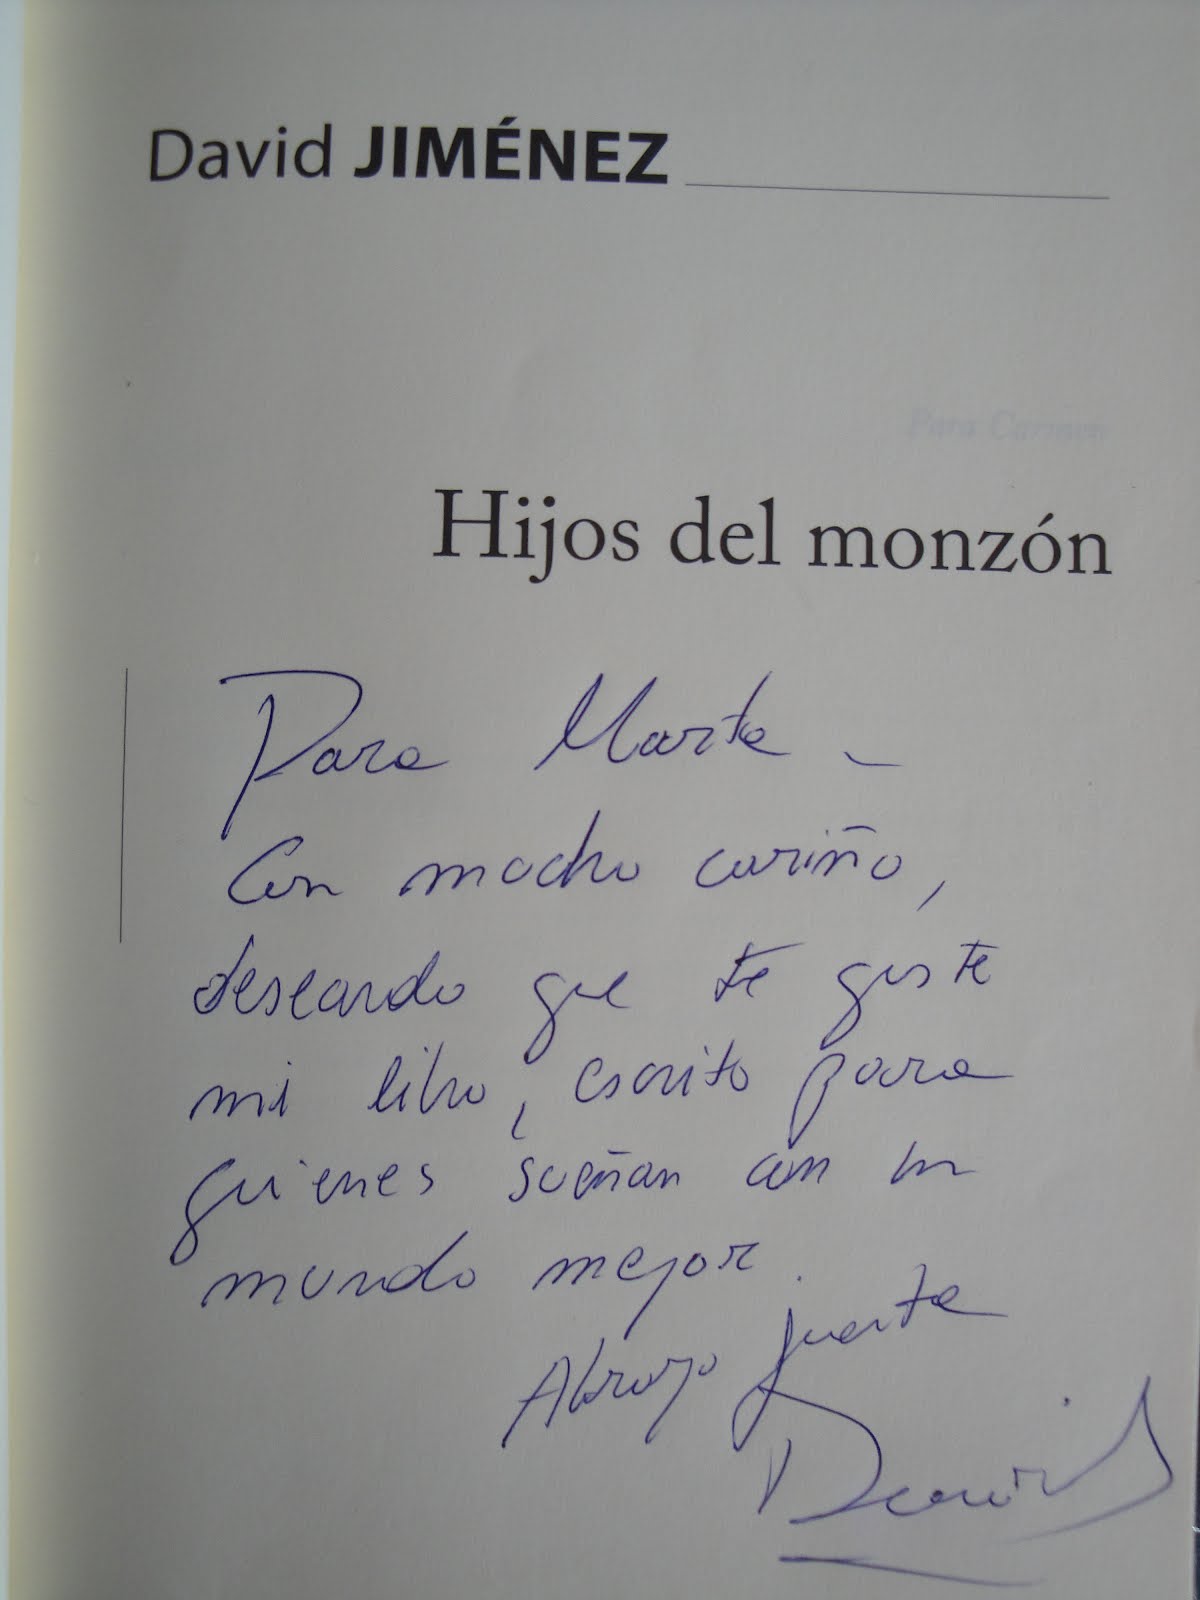 David JIMÉNEZ
Para Carmen
Hijos del monzón
Para Marta -
Con mucho cariño,
deseando que te guste
mi libro, escrito para
quienes sueñan con un
mundo mejor.
Abrazo fuerte
David